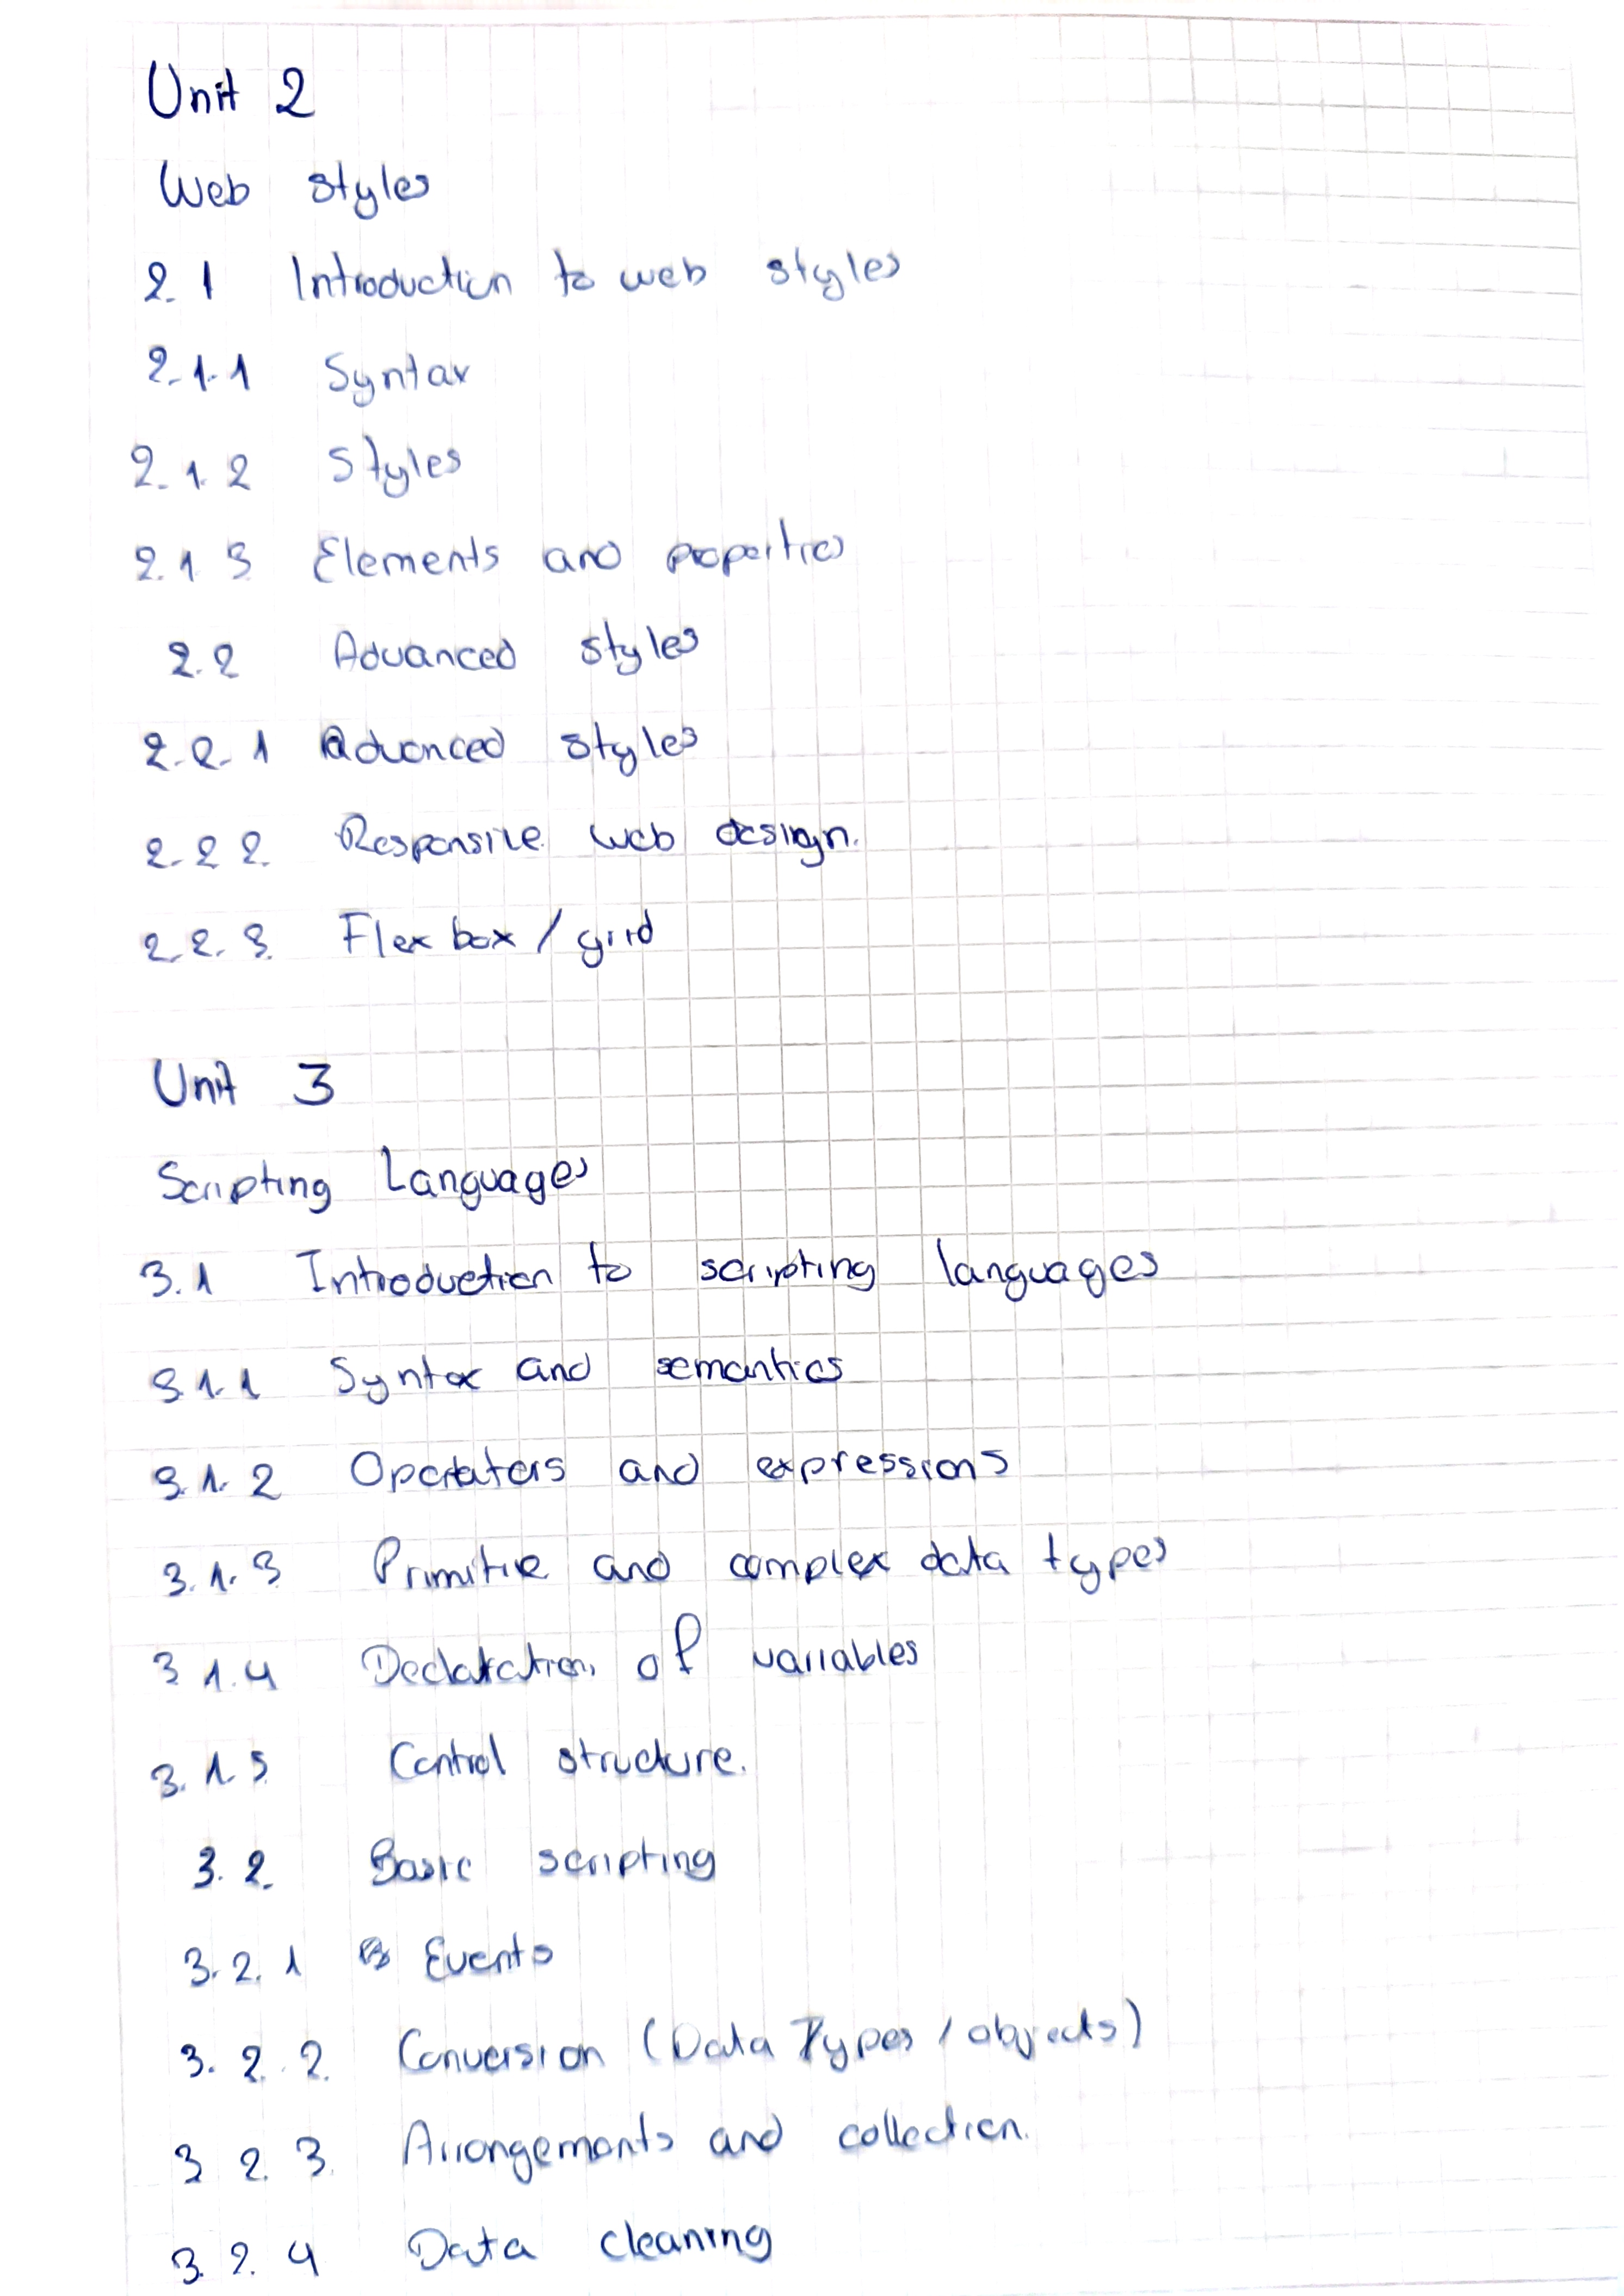 Unit 2
Web styles
2.1 Introduction to web styles
2.1.1 Syntax
2.1.2 Styles
2.1 3 Elements and properties
2.2 Advanced styles
2.2.1 Advanced styles
2.2 2. Responsive web design.
2.2.3. Flex box / grid
Unit 3
Scripting Languages
3.1 Introduction to scripting languages
3.1.1 Syntax and semantics
3.1.2 Operators and expressions
3.1.3 Primitive and complex data types
3 1.4 Declaration of variables
3.1.5 Control structure.
3.2. Basic scripting
3.2.1 Events
3.2.2. Conversion (Data Types / objects)
3 2.3. Arrangements and collection.
3.2.4 Data cleaning